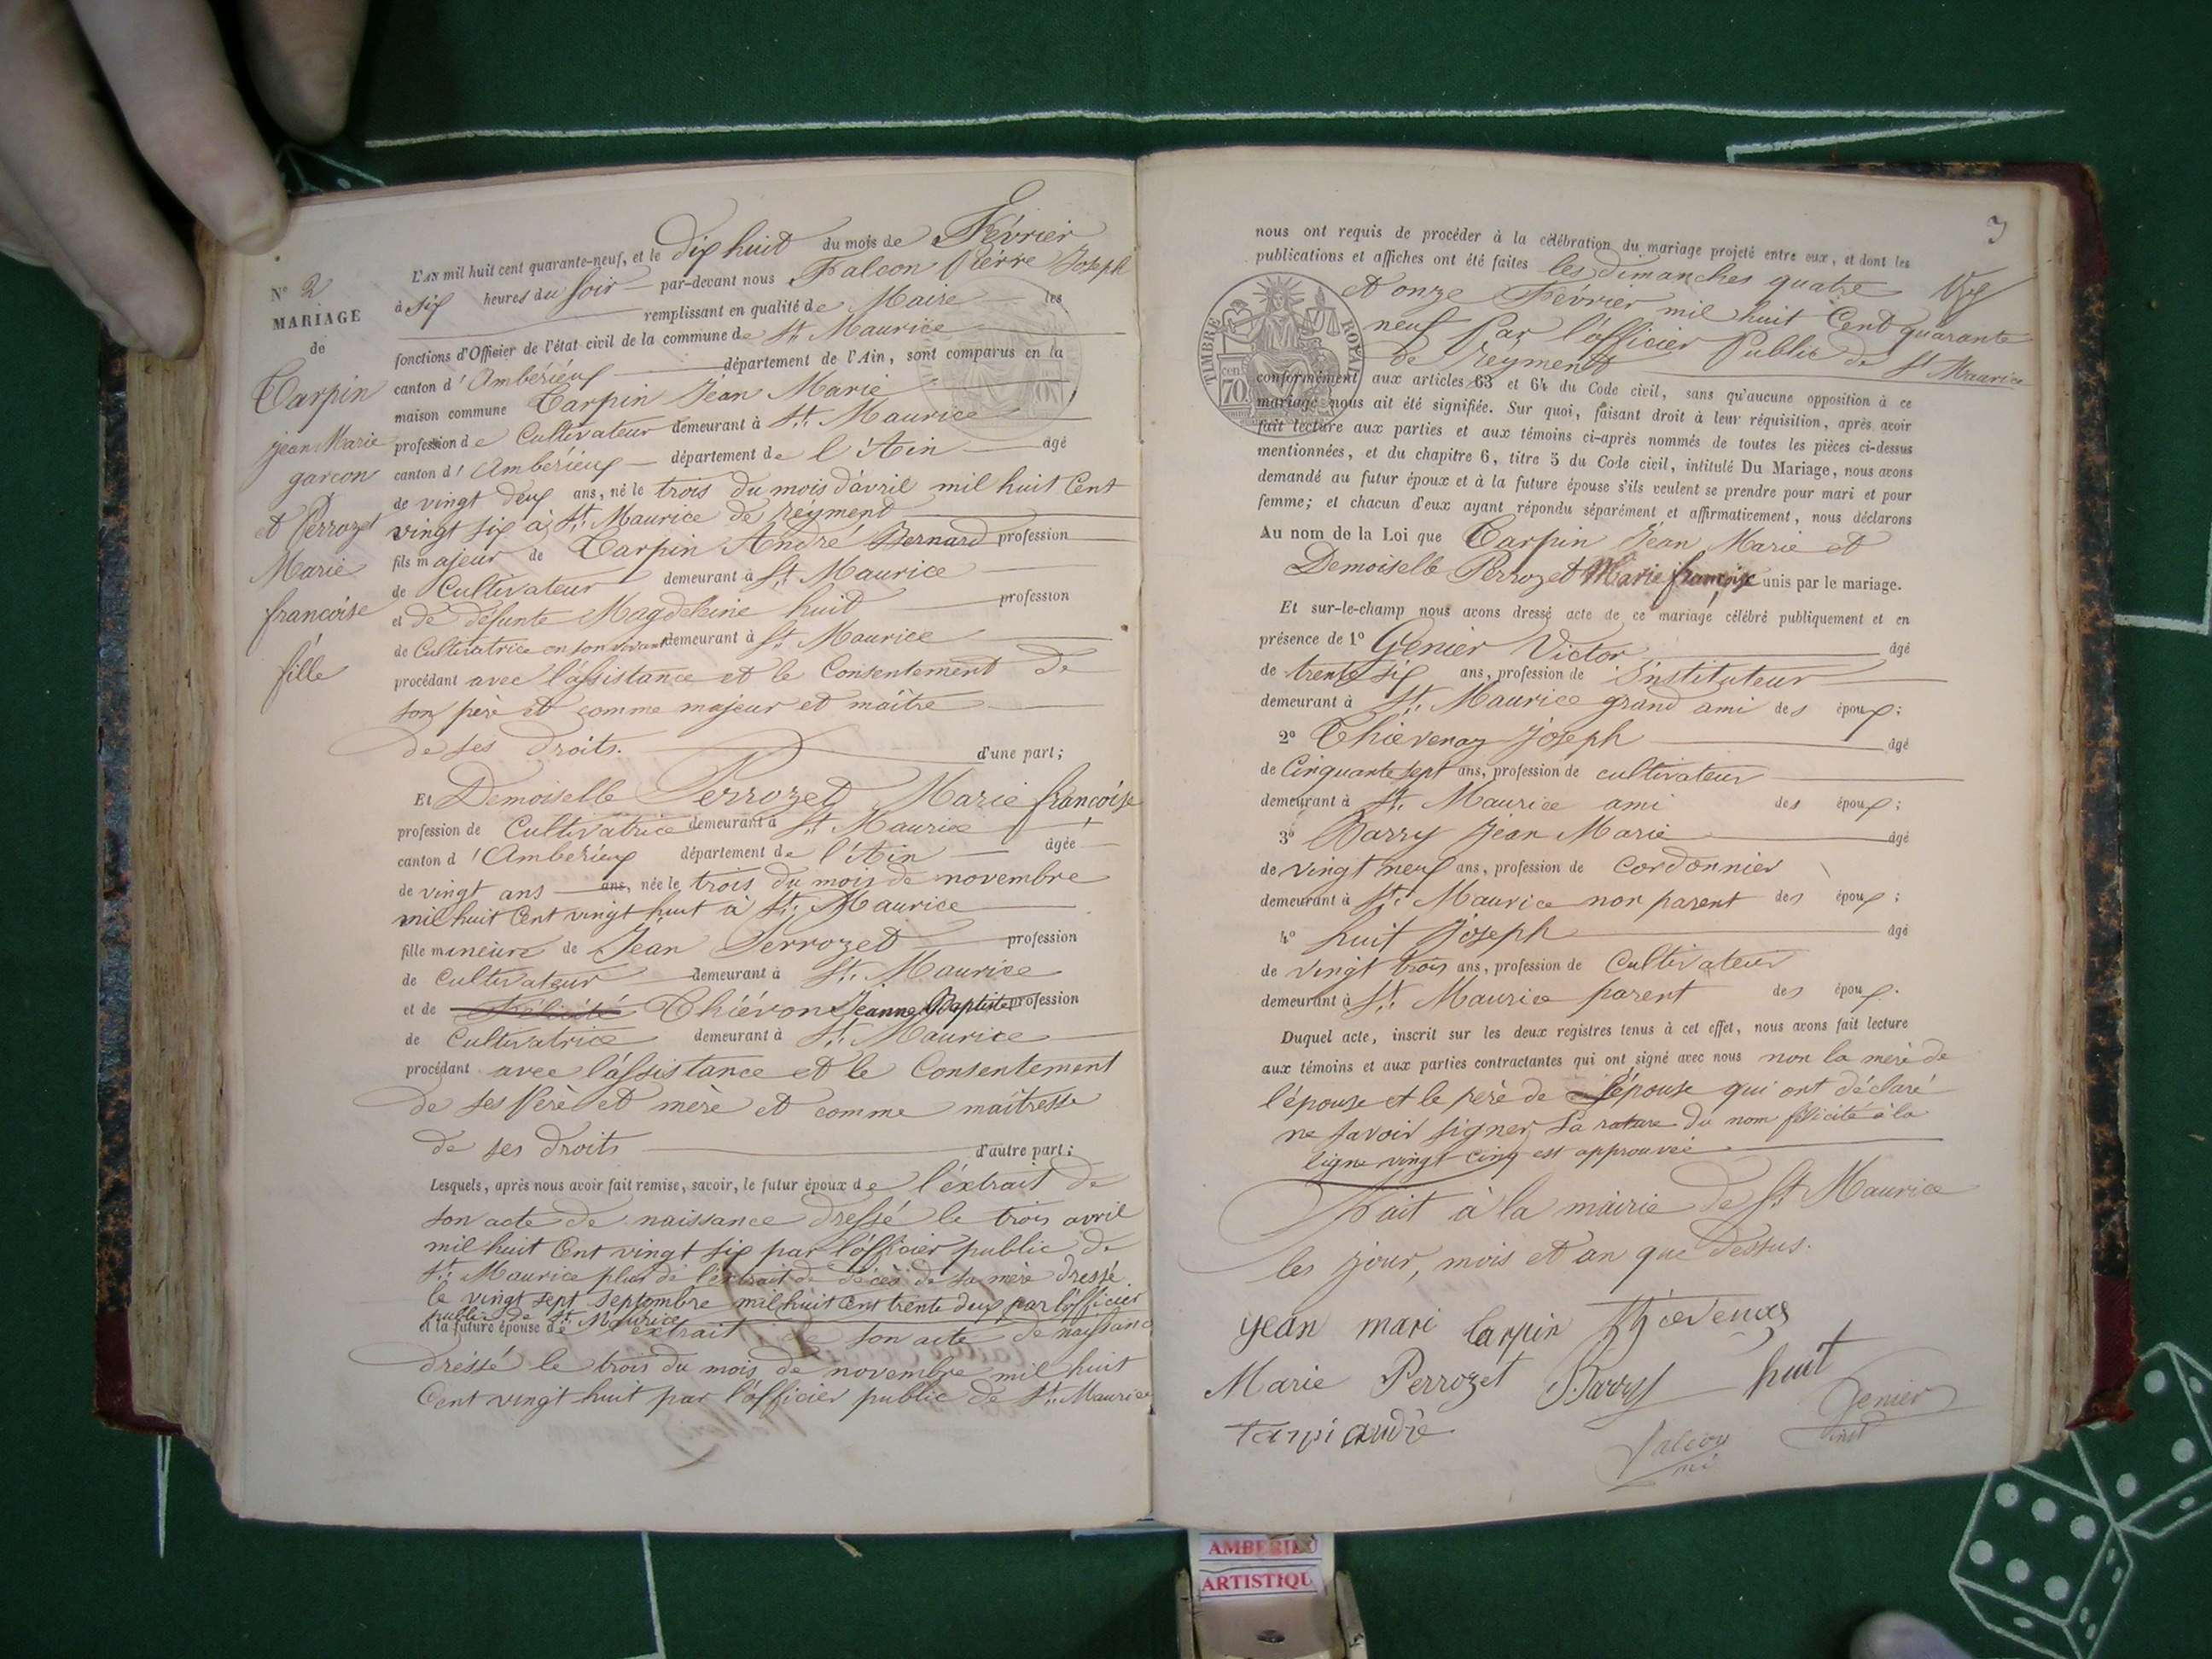 L'AN mil huit cent quarante-neuf, et le dix huit du mois de Février
à six heures du soir par-devant nous Falcon Pierre Joseph
remplissant en qualité de Maire les
fonctions d'Officier de l'état civil de la commune de St. Maurice
canton d'Ambérieux département de l'Ain, sont comparus en la
maison commune Tarpin Jean Marie
profession de Cultivateur demeurant à St. Maurice
canton d'Ambérieux département de l'Ain âgé
de vingt deux ans, né le trois du mois d'avril mil huit Cent
vingt six à St. Maurice de reyment
fils majeur de Tarpin André Bernard profession
de Cultivateur demeurant à St. Maurice
et de défunte Magdeleine huit profession
de Cultivatrice en son vivant demeurant à St. Maurice
procédant avec l'assistance et le Consentement de
son père et comme majeur et maître
de ses droits. d'une part;
Et Demoiselle Perrozet Marie françoise
profession de Cultivatrice demeurant à St Maurice
canton d'Amberieux département de l'Ain âgée
de vingt ans ans, née le trois du mois de novembre
mil huit Cent vingt huit à St. Maurice
fille mineure de Jean Perrozet profession
de Cultivateur demeurant à St. Maurice
et de Félicité Thiévon Jeanne Baptiste profession
de Cultivatrice demeurant à St. Maurice
procédant avec l'assistance et le Consentement
de ses Père et mère et comme maîtresse
de ses droits d'autre part;
Lesquels, après nous avoir fait remise, savoir, le futur époux de l'éxtrait de
son acte de naissance dressé le trois avril
mil huit Cent vingt six par l'officier public de
St. Maurice plus de l'extrait de décès de sa mère dressé
le vingt sept septembre mil huit Cent trente deux par l'officier
public de St. Maurice
et la future épouse de l'extrait de son acte de naissance
dressé le trois du mois de novembre mil huit
Cent vingt huit par l'officier public de St. Maurice
N° 2
MARIAGE
de
Tarpin
jean Marie
garcon
et Perrozet
Marie
francoise
fille
3
nous ont requis de procéder à la célébration du mariage projeté entre eux, et dont les
publications et affiches ont été faites les dimanches quatre
et onze Février mil huit Cent quarante
neuf Par l'officier Public de St Maurice
de reyment
TIMBRE ROYAL
cent 70
conformément aux articles 63 et 64 du Code civil, sans qu'aucune opposition à ce
mariage nous ait été signifiée. Sur quoi, faisant droit à leur réquisition, après avoir
fait lecture aux parties et aux témoins ci-après nommés de toutes les pièces ci-dessus
mentionnées, et du chapitre 6, titre 5 du Code civil, intitulé Du Mariage, nous avons
demandé au futur époux et à la future épouse s'ils veulent se prendre pour mari et pour
femme; et chacun d'eux ayant répondu séparément et affirmativement, nous déclarons
Au nom de la Loi que Tarpin Jean Marie et
Demoiselle Perrozet Marie françoise unis par le mariage.
Et sur-le-champ nous avons dressé acte de ce mariage célébré publiquement et en
présence de 1° Genier Victor âgé
de trente six ans, profession de Instituteur
demeurant à St. Maurice grand ami des époux;
2° Thievenaz Joseph âgé
de Cinquante sept ans, profession de cultivateur
demeurant à St. Maurice ami des époux;
3° Barry Jean Marie âgé
de vingt neuf ans, profession de cordonnier
demeurant à St. Maurice non parent des époux;
4° huit Joseph âgé
de vingt trois ans, profession de Cultivateur
demeurant à St. Maurice parent des époux.
Duquel acte, inscrit sur les deux registres tenus à cet effet, nous avons fait lecture
aux témoins et aux parties contractantes qui ont signé avec nous non la mère de
l'épouse et le père de l'épouse qui ont déclaré
ne savoir signer, La rature du nom félicité à la
ligne vingt cinq est approuvée
Fait à la mairie de St Maurice
les jour, mois et an que dessus.
jean mari tarpin Thievenaz
Marie Perrozet Barry huit
tarpi andré Genier
Falcon inst
AMBERIEU
ARTISTIQU